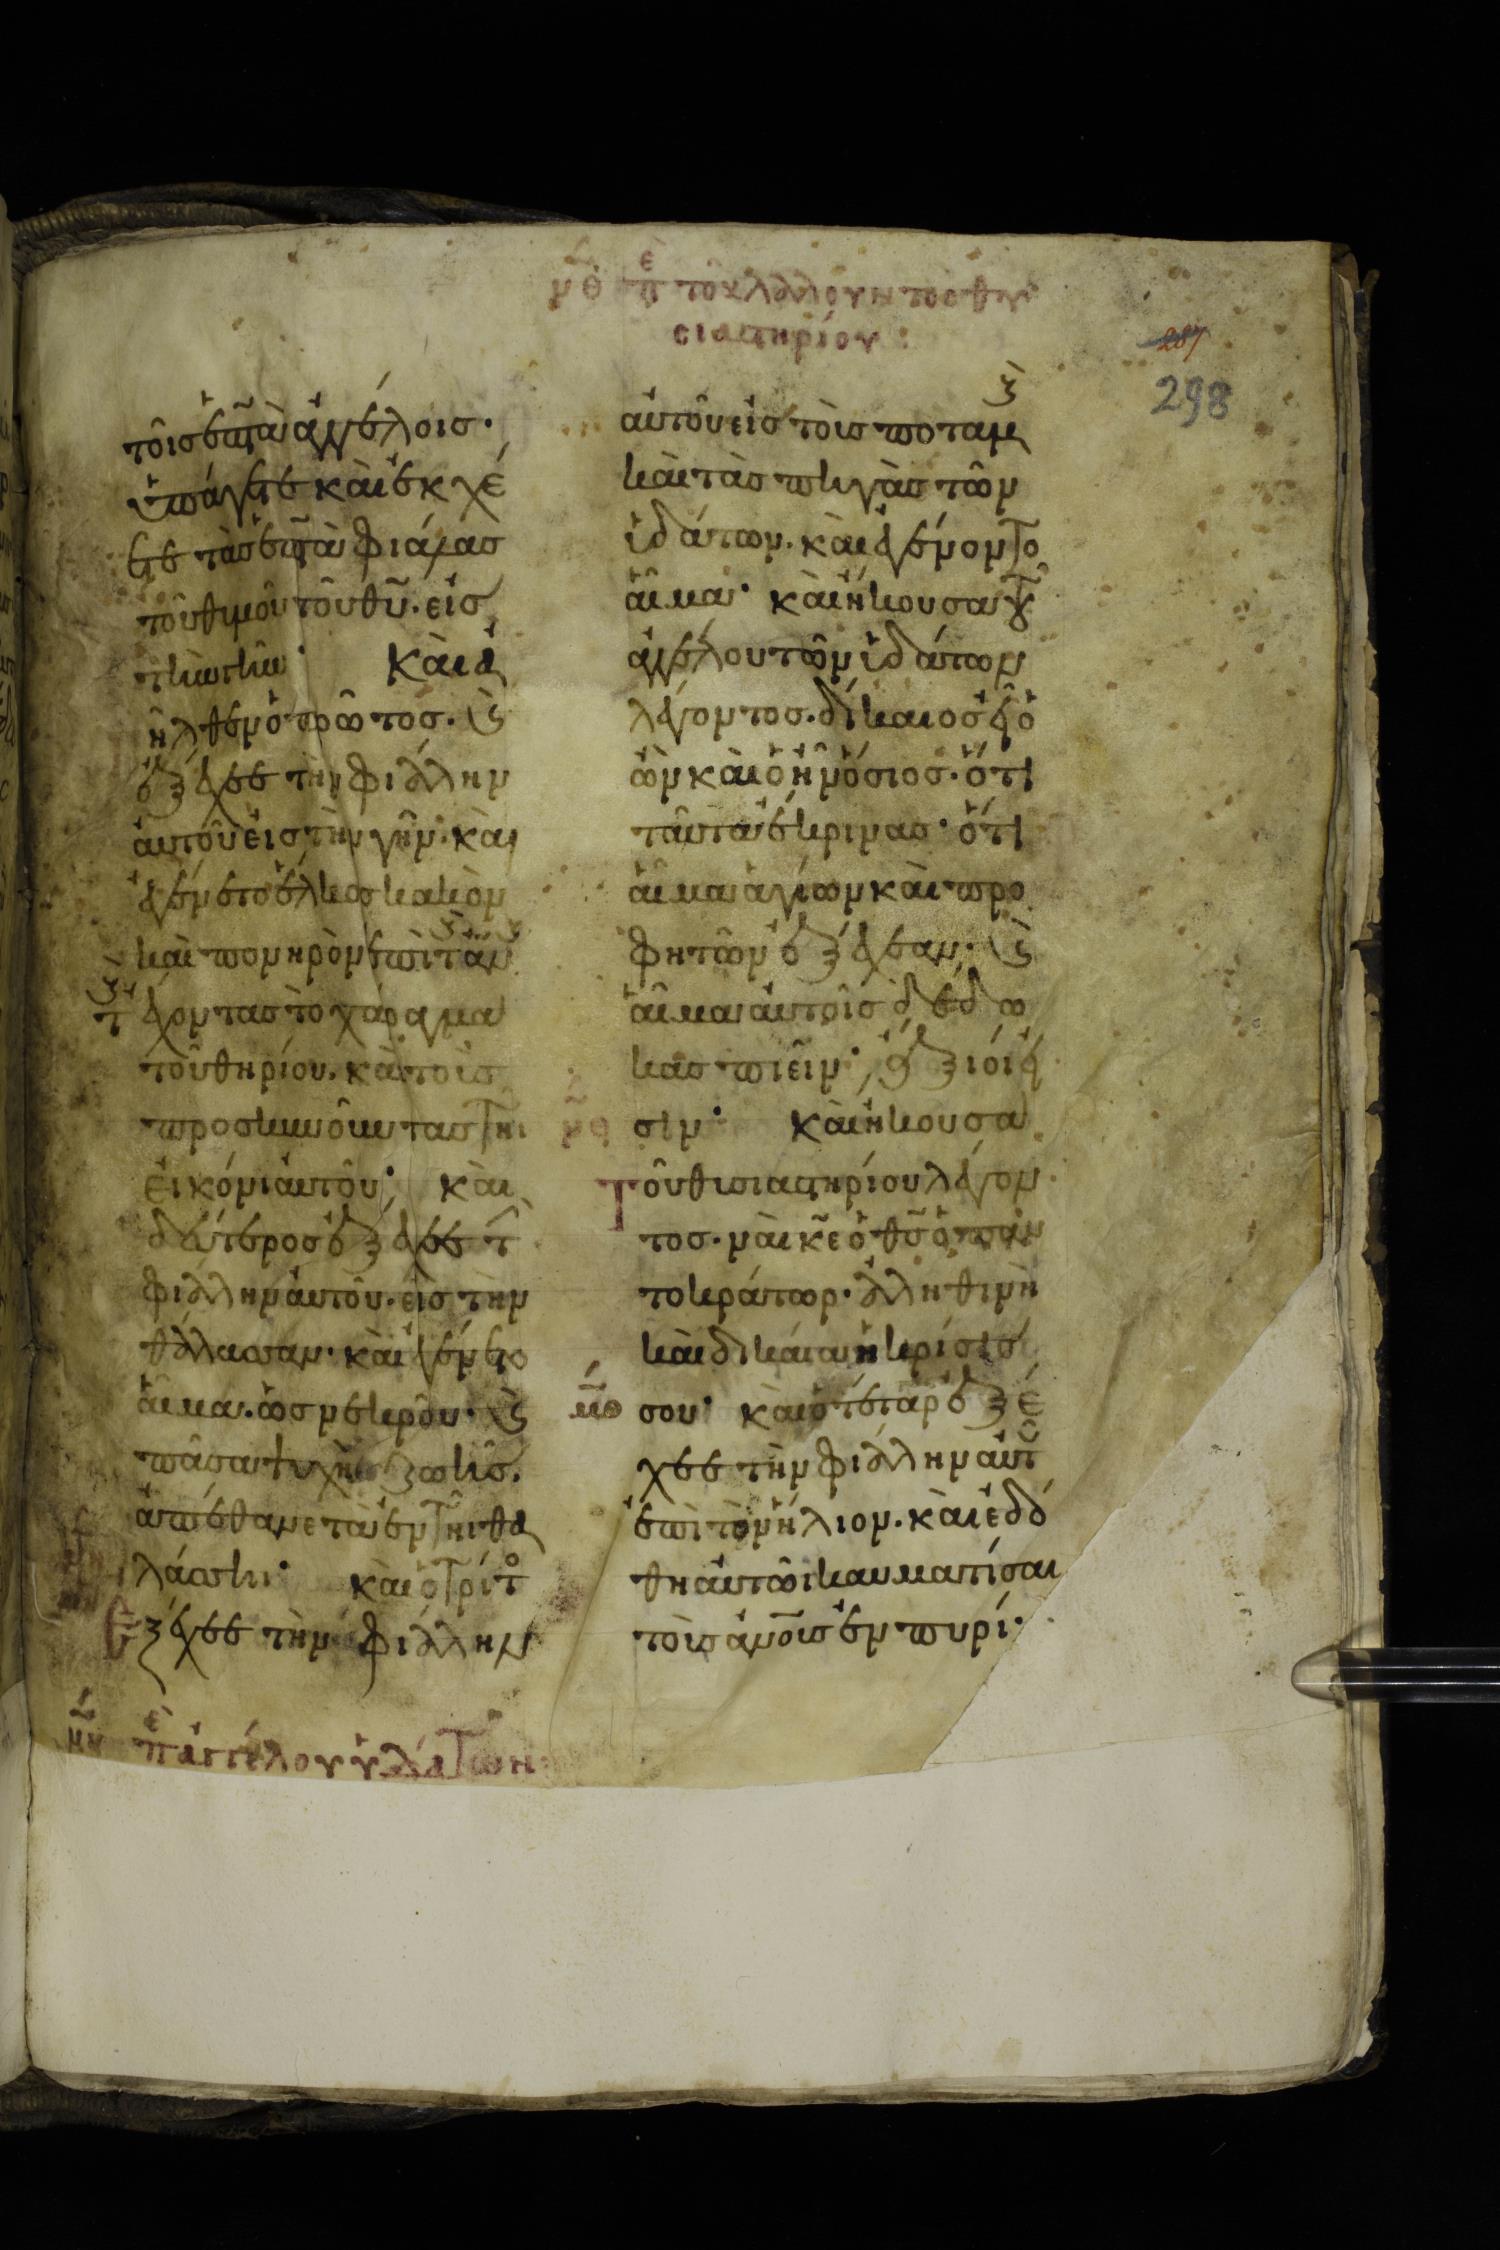 μθ π̅ὲ τοῦ λαλοῦντος θυ
σιαστηρίου:
287
298
τοῖς ἑπτὰ ἀγγέλοις·
ὑπάγετε καὶ ἐκχέ
ετε τὰς ἑπτὰ φιάλας
τοῦ θυμοῦ τοῦ θ̅υ̅. εἰς
τὴν γῆν· Καὶ ἀ
ῆλθεν ὁ πρῶτος. ϗ
ἐξέχεε τὴν φιάλην
αὐτοῦ εἰς τὴν γῆν· καὶ
ἐγένετο ἕλκος κακὸν
καὶ πονηρὸν ἐπὶ τ ἀν
τ ἔχοντας τὸ χάραγμα
τοῦ θηρίου. κὰ τοὺς
προσκυνοῦντας τῆι
εἰκόνι αὐτοῦ· καὶ
δεύτερος ἐξέχεε τ̅
φιάλην αὐτοῦ. εἰς τὴν
θάλασσαν· καὶ ἐγένετο
αἷμα. ὡς νεκροῦ· ϗ
πᾶσα ψυχὴ ζωῆς.
ἀπέθανε τὰ ἐν τῆι θα
λάσσηι· καὶ ὁ τρίτο
ἐξέχεε τὴν φιάλην
μη π̅ὲ ἀγγέλου ὑδάτων:
αὐτοῦ εἰς τοὺς ποταμ
καὶ τὰς πηγὰς τῶν
ὑδάτων. καὶ ἐγένοντο
αἷμα· καὶ ἤκουσα τοῦ
ἀγγέλου τῶν ὑδάτων
λέγοντος. δίκαιος εἶ ὁ
ὢν καὶ ὁ ἦν ὅσιος. ὅτι
ταῦτα ἔκρινας· ὅτι
αἷμα ἁγίων καὶ προ
φητῶν ἐξέχεαν. ϗ
αἷμα αὐτοῖς δέδω
κας πιεῖν· ἄξιοί εἰ
σιν· καὶ ἤκουσα
Τοῦ θυσιαστηρίου λέγον
τος. ναὶ κ̅ε̅ ὁ θ̅ς̅ ὁ παν
τοκράτωρ. ἀληθινὴ
καὶ δικαία ἡ κρίσις
σου· καὶ ὁ τέταρ ἐξέ
χεε τὴν φιάλην αὐτ
ἐπὶ τὸν ἥλιον. καὶ ἐδό
θη αὐτῶι καυματίσαι
τοὺς ἀ̅ν̅ο̅υ̅ς̅ ἐν πυρί·